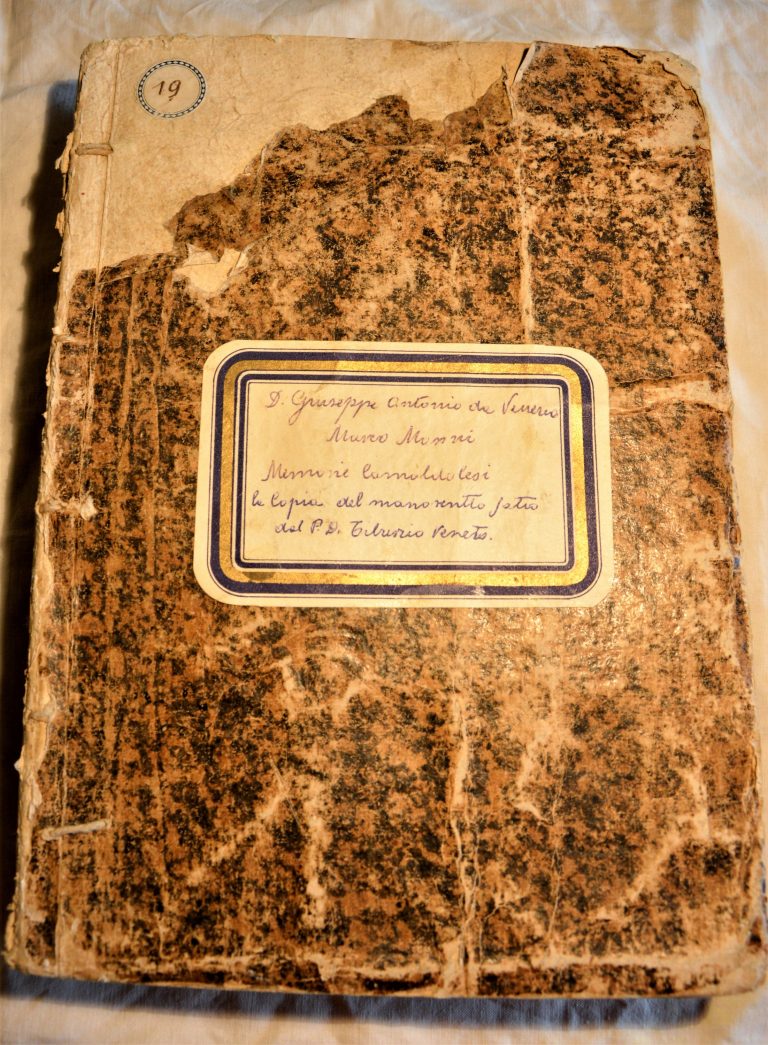 19
D. Giuseppe Antonio da
Marco
Memorie Camaldolesi
la Copia del manoscritto fatto
dal P. D. Tiburzio Veneto.